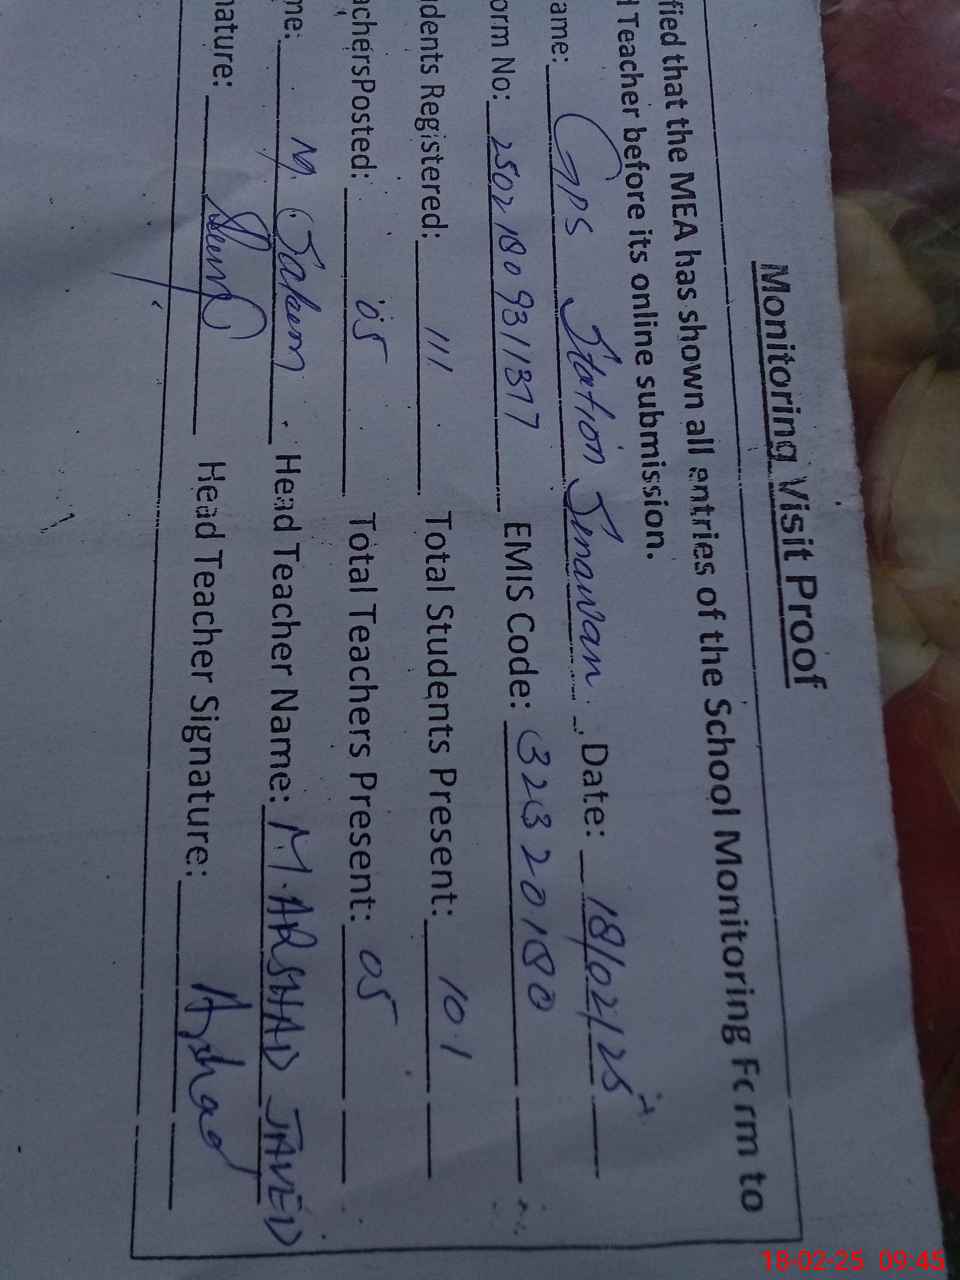 Monitoring Visit Proof
fied that the MEA has shown all entries of the School Monitoring Form to
d Teacher before its online submission.
ame: GPS Station Sinawan Date: 18/02/25
orm No: 2502180931137 7 EMIS Code: 32320180
dents Registered: 111 Total Students Present: 101
achersPosted: 05 Total Teachers Present: 05
me: M. Saleem Head Teacher Name: M. ARSHAD JAVED
nature: Head Teacher Signature: Arshad
18-02-25 09:45